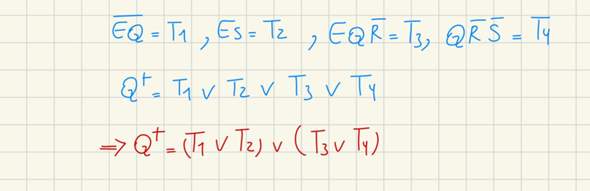 E̅Q̅ = T₁ , ES = T₂ , EQR̅ = T₃, QR̅ S̅ = T̅₄
Q⁺ = T₁ ∨ T₂ ∨ T₃ ∨ T₄
⇒ Q⁺ = (T₁ ∨ T₂) ∨ (T₃ ∨ T₄)